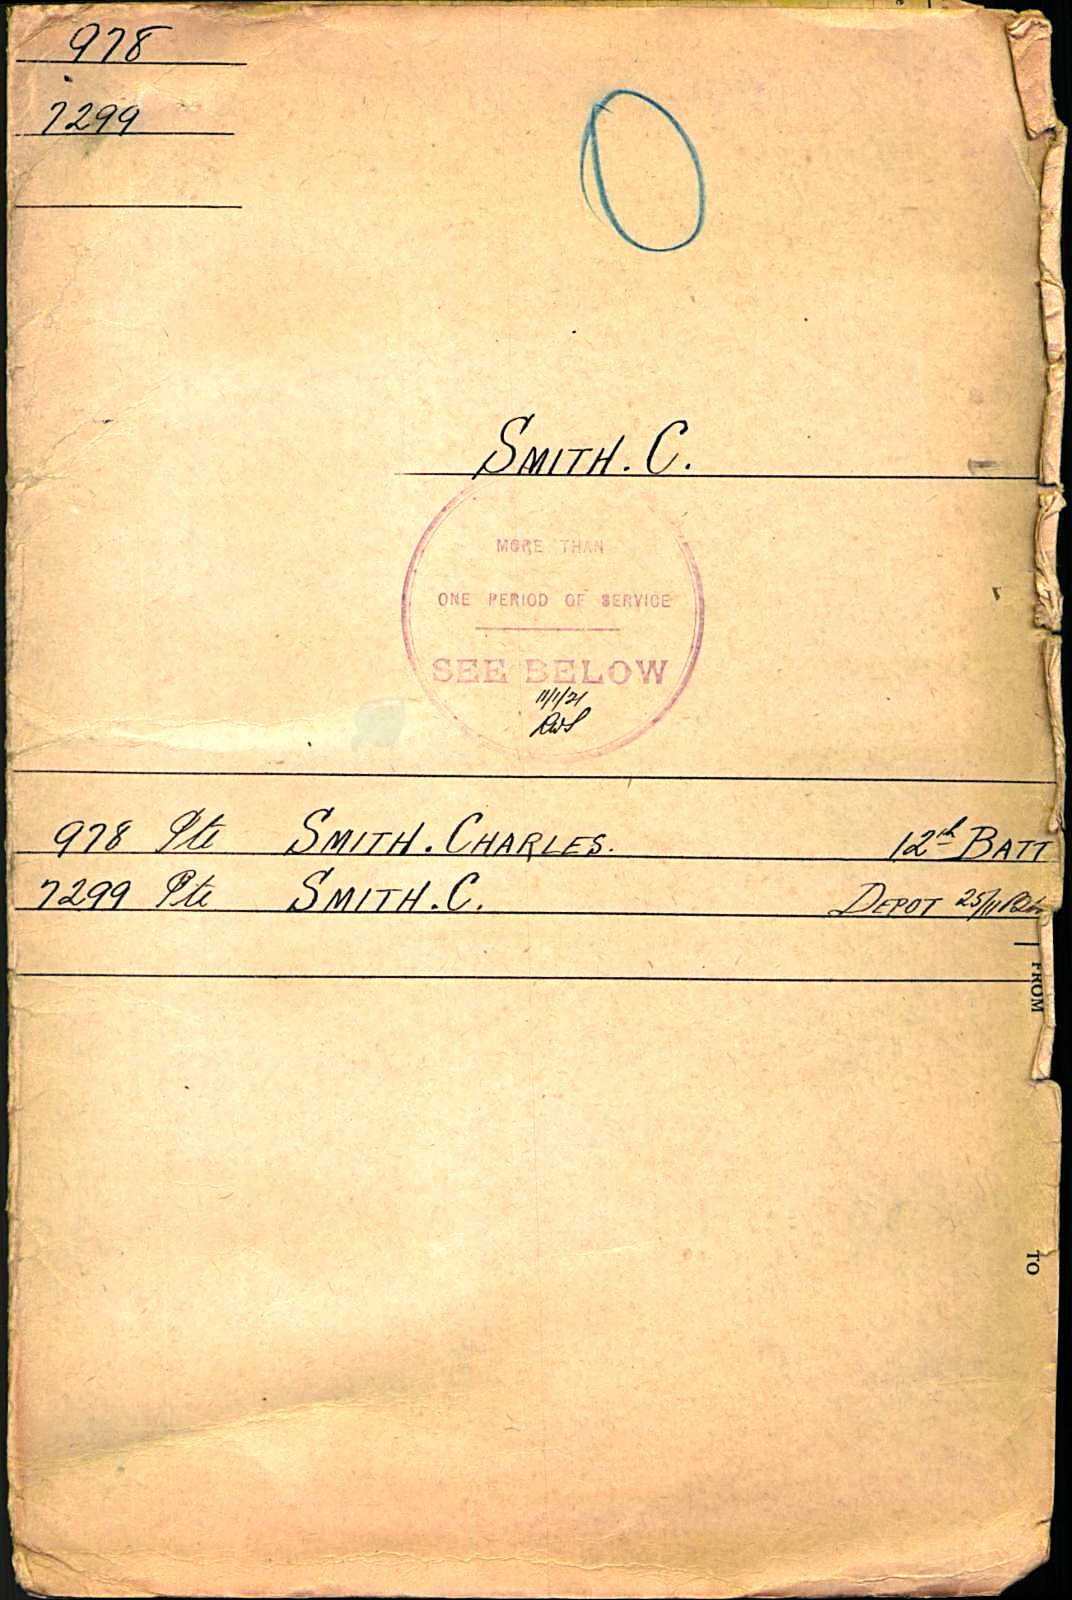 978
7299
SMITH. C.
MORE THAN
ONE PERIOD OF SERVICE
SEE BELOW
11/1/21
978 Pte SMITH. CHARLES. 12th BATT
7299 Pte SMITH. C. DEPOT 25/11
FROM
TO